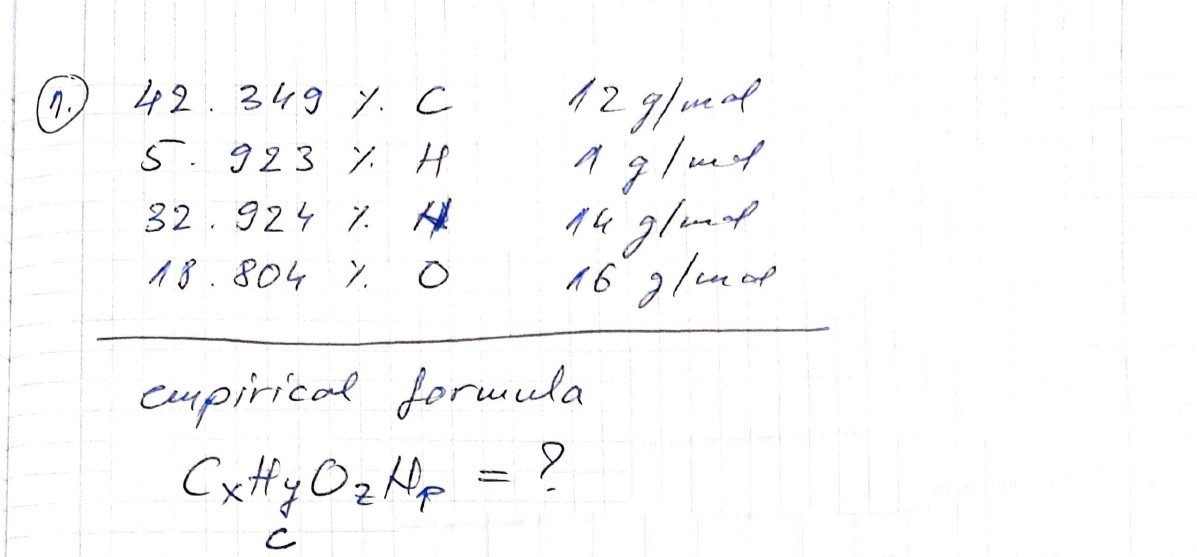 1. 42.349 % C 12 g/mol
5.923 % H 1 g/mol
32.924 % N 14 g/mol
18.804 % O 16 g/mol
empirical formula
CxHyOzNp = ?
C